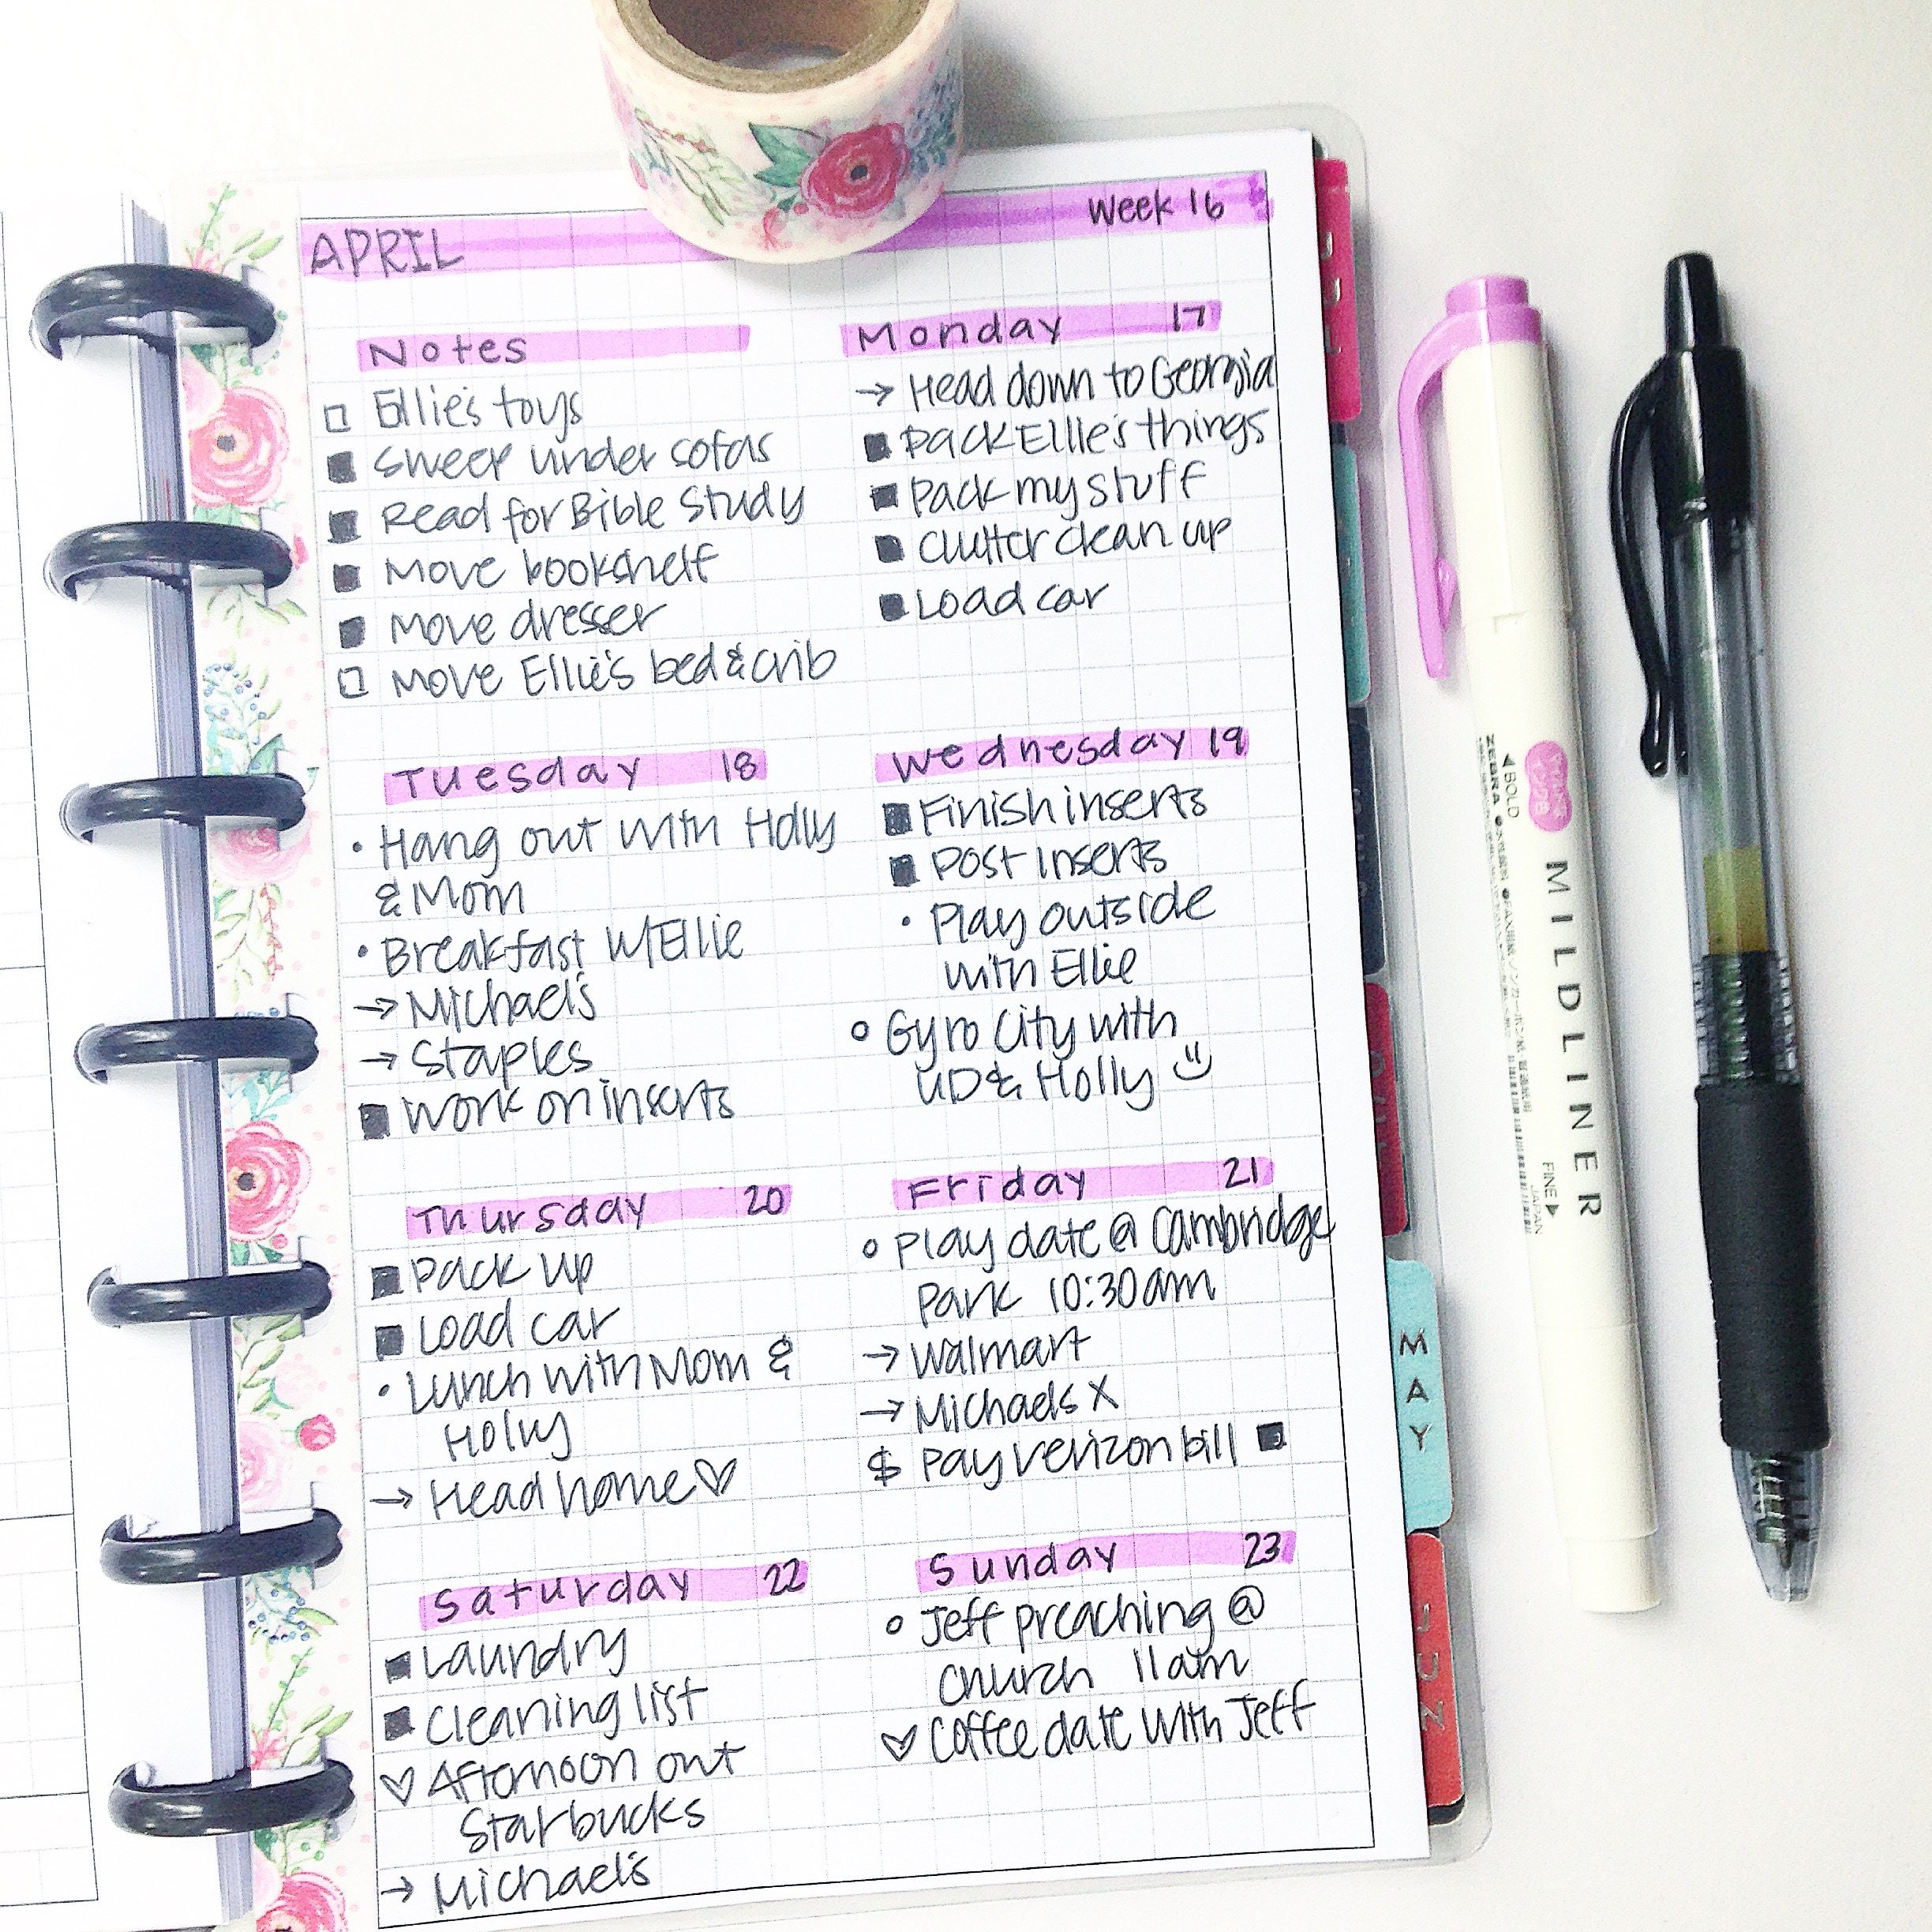 APRIL
Week 16
Notes
Ellie's toys
Sweep under sofas
Read for Bible Study
Move bookshelf
Move dresser
Move Ellie's bed & crib
Monday 17
→ Head down to Georgia
Pack Ellie's things
Pack my stuff
Clutter clean up
Load car
Tuesday 18
• Hang out with Holly
& Mom
• Breakfast w/Ellie
→ Michael's
→ Staples
Work on inserts
Wednesday 19
Finish inserts
Post inserts
• Play outside
with Ellie
Gyro City with
UD & Holly
Thursday 20
Pack up
Load car
• Lunch with Mom &
Holly
→ Head home ♡
Friday 21
Play date @ Cambridge
Park 10:30am
→ Walmart
→ Michaels X
$ Pay verizon bill
Saturday 22
Laundry
Cleaning list
♡ Afternoon out
Starbucks
→ Michael's
Sunday 23
Jeff preaching @
church 11am
♡ Coffee date with Jeff
MAY
JUN
◀BOLD
ZEBRA
MILDLINER
FINE▶
JAPAN